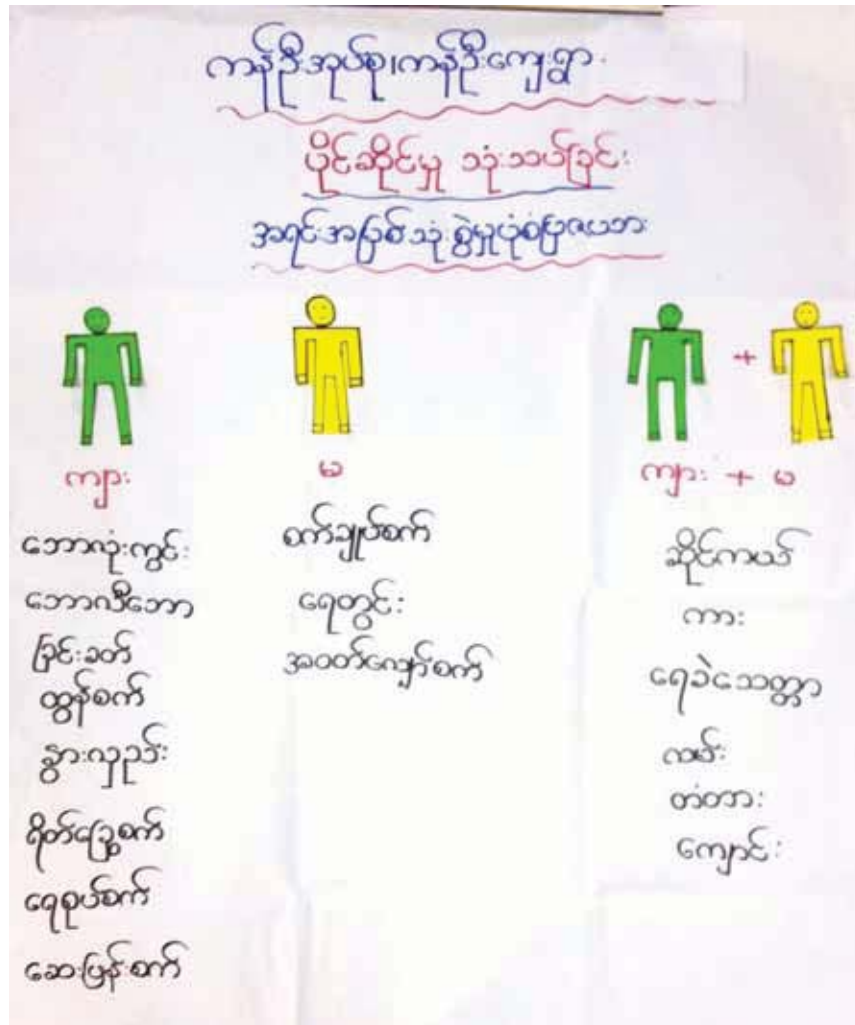 ကန်ဦးအုပ်စု၊ကန်ဦးကျေးရွာ
ပိုင်ဆိုင်မှု သုံးသပ်ခြင်း
အရင်းအမြစ်သုံးစွဲမှုပုံစံပြဇယား
+
ကျား
မ
ကျား + မ
ဘောလုံးကွင်း
ဘောလီဘော
ခြင်းခတ်
ထွန်စက်
နွားလှည်း
ရိတ်ခြွေစက်
ရေစုပ်စက်
ဆေးဖြန်းစက်
စက်ချုပ်စက်
ရေတွင်း
အဝတ်လျှော်စက်
ဆိုင်ကယ်
ကား
ရေခဲသေတ္တာ
လမ်း
တံတား
ကျောင်း